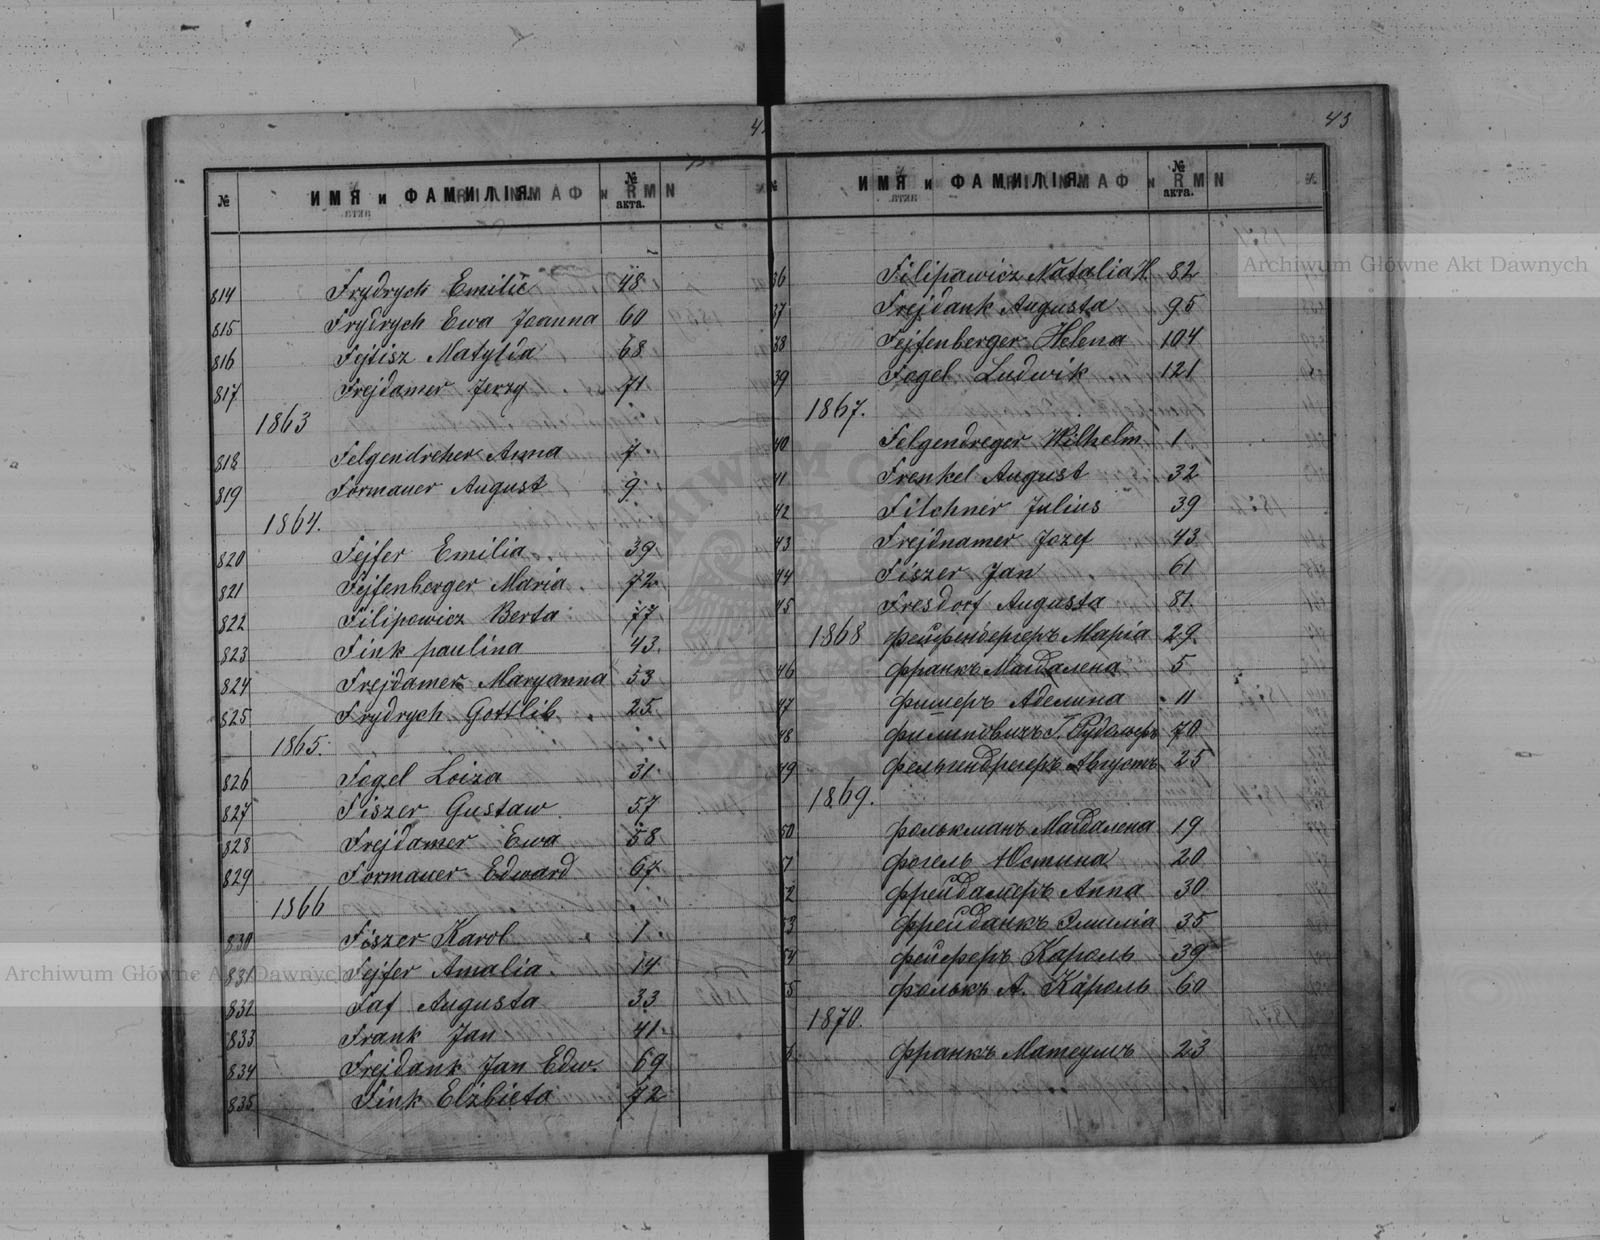 43
№ ИМЯ и ФАМИЛІЯ. № акта.
814 Frydrych Emilie 48
815 Frydrych Ewa Joanna 60
816 Fejtisz Matylda 68
817 Frejdamer Jerzy 71
1863
818 Felgendreher Anna 7
819 Formauer August 9
1864.
820 Fejfer Emilia 39
821 Fejfenberger Maria 72
822 Filipowicz Berta 77
823 Fink paulina 43
824 Frejdamer Maryanna 53
825 Frydrych Gottlib 25
1865.
826 Fogel Loiza 31
827 Fiszer Gustaw 57
828 Frejdamer Ewa 58
829 Formauer Edward 67
1866
830 Fiszer Karol 1
831 Fejfer Amalia 14
832 Faf Augusta 33
833 Frank Jan 41
834 Frejdank Jan Edw. 69
835 Fink Elżbieta 72
ИМЯ и ФАМИЛІЯ № акта.
36 Filipowicz Natalia H. 82
37 Frejdank Augusta 95
38 Fejfenberger Helena 104
39 Fogel Ludwik 121
1867.
40 Felgendreger Wilhelm 1
41 Frenkel August 32
42 Filchner Julius 39
43 Frejdnamer Jozef 43
44 Fiszer Jan 61
45 Fresdorf Augusta 81
1868 Фейфенбергеръ Марія 29
46 Франкъ Магдалена 5
47 Фишеръ Аделина 11
48 Филиповичъ Г. Рудольфъ 70
49 Фельгендрегеръ Августъ 25
1869.
50 Фолькманъ Магдалена 19
Фогель Юстина 20
2 Фрейдамеръ Анна 30
53 Фрейданкъ Эмилія 35
54 Фейферъ Кароль 39
5 Фолькъ А. Кароль 60
1870.
6 Франкъ Матеушъ 23
Archiwum Główne Akt Dawnych
Archiwum Główne Akt Dawnych